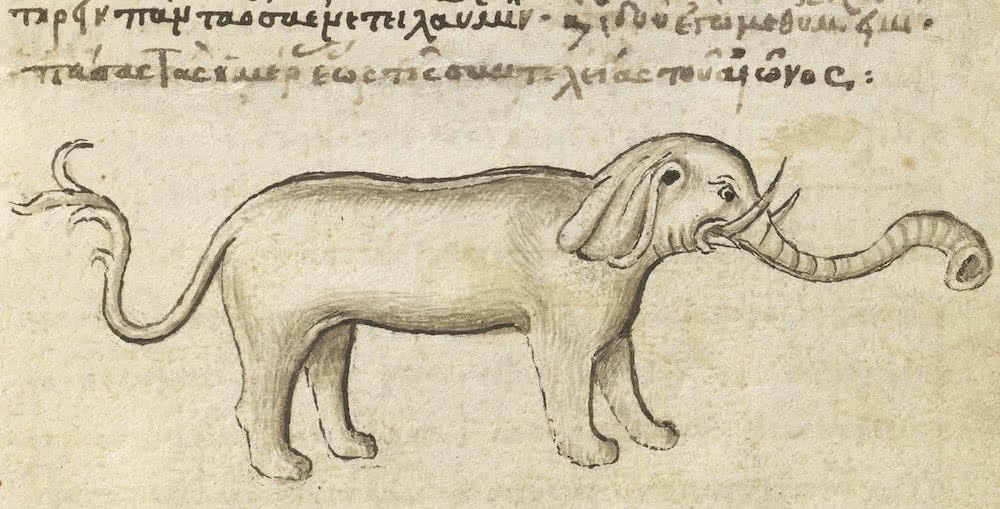 τηρεῖν πάντα ὅσα ἐνετειλα ὑμῖν · καὶ ἰδοὺ ἐγὼ μεθ ὑμῶν εἰμι ·
πάσας τὰς ἡμέρ ἕως τῆς συντελείας τοῦ αἰῶνος :